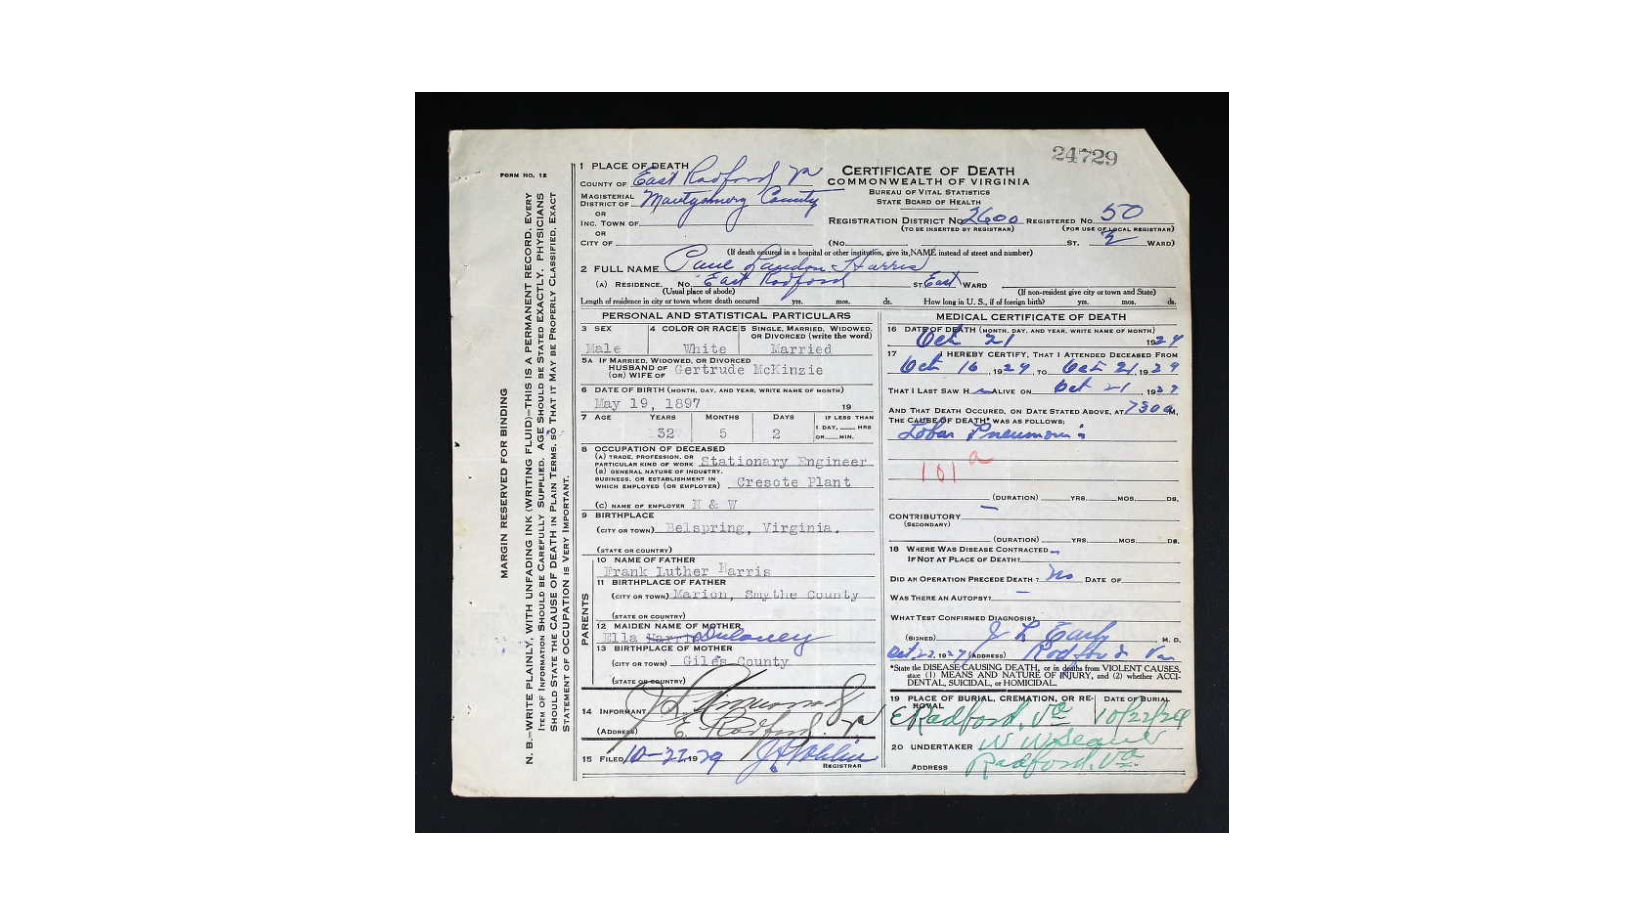 24729
FORM NO. 12
MARGIN RESERVED FOR BINDING
N. B.—WRITE PLAINLY, WITH UNFADING INK (WRITING FLUID)—THIS IS A PERMANENT RECORD. EVERY
ITEM OF INFORMATION SHOULD BE CAREFULLY SUPPLIED. AGE SHOULD BE STATED EXACTLY. PHYSICIANS
SHOULD STATE THE CAUSE OF DEATH IN PLAIN TERMS, SO THAT IT MAY BE PROPERLY CLASSIFIED. EXACT
STATEMENT OF OCCUPATION IS VERY IMPORTANT.
1 PLACE OF DEATH
COUNTY OF East Radford Va
MAGISTERIAL
DISTRICT OF Montgomery County
OR
INC. TOWN OF
OR
CITY OF
CERTIFICATE OF DEATH
COMMONWEALTH OF VIRGINIA
BUREAU OF VITAL STATISTICS
STATE BOARD OF HEALTH
REGISTRATION DISTRICT NO. 2600 REGISTERED NO. 50
(TO BE INSERTED BY REGISTRAR) (FOR USE OF LOCAL REGISTRAR)
(NO. ST. WARD)
(If death occured in a hospital or other institution, give its NAME instead of street and number)
2 FULL NAME Paul Landon Harris
(A) RESIDENCE. NO. East Radford ST. East WARD
(Usual place of abode) (If non-resident give city or town and State)
Length of residence in city or town where death occured yrs. mos. ds. How long in U. S., if of foreign birth? yrs. mos. ds.
PERSONAL AND STATISTICAL PARTICULARS
3 SEX 4 COLOR OR RACE 5 SINGLE, MARRIED, WIDOWED,
OR DIVORCED (write the word)
Male White Married
5A IF MARRIED, WIDOWED, OR DIVORCED
HUSBAND OF
(OR) WIFE OF Gertrude McKinzie
6 DATE OF BIRTH (MONTH, DAY, AND YEAR, WRITE NAME OF MONTH)
May 19, 1897 19
7 AGE YEARS MONTHS DAYS IF LESS THAN
1 DAY, HRS
OR MIN.
32 5 2
8 OCCUPATION OF DECEASED
(A) TRADE, PROFESSION, OR
PARTICULAR KIND OF WORK Stationary Engineer
(B) GENERAL NATURE OF INDUSTRY,
BUSINESS, OR ESTABLISHMENT IN
WHICH EMPLOYED (OR EMPLOYER) Cresote Plant
(C) NAME OF EMPLOYER N & W
9 BIRTHPLACE
(CITY OR TOWN) Belspring, Virginia.
(STATE OR COUNTRY)
PARENTS
10 NAME OF FATHER
Frank Luther Harris
11 BIRTHPLACE OF FATHER
(CITY OR TOWN) Marion, Smythe County
(STATE OR COUNTRY)
12 MAIDEN NAME OF MOTHER
Ella Harris Dulaney
13 BIRTHPLACE OF MOTHER
(CITY OR TOWN) Giles County
(STATE OR COUNTRY)
14 INFORMANT
(ADDRESS) E. Radford. Va
15 FILED 10-22, 1929
REGISTRAR
MEDICAL CERTIFICATE OF DEATH
16 DATE OF DEATH (MONTH, DAY, AND YEAR, WRITE NAME OF MONTH)
Oct 21 1929
17 I HEREBY CERTIFY, THAT I ATTENDED DECEASED FROM
Oct 16, 1929, TO Oct 21, 1929
THAT I LAST SAW H ALIVE ON Oct 21, 1929
AND THAT DEATH OCCURED, ON DATE STATED ABOVE, AT 730a M.
THE CAUSE OF DEATH* WAS AS FOLLOWS:
Lobar Pneumonia
101 a
(DURATION) YRS. MOS. DS.
CONTRIBUTORY
(SECONDARY)
(DURATION) YRS. MOS. DS.
18 WHERE WAS DISEASE CONTRACTED
IF NOT AT PLACE OF DEATH?
DID AN OPERATION PRECEDE DEATH? No DATE OF
WAS THERE AN AUTOPSY?
WHAT TEST CONFIRMED DIAGNOSIS?
(SIGNED) J L Early M. D.
Oct. 22, 1929 (ADDRESS) Radford Va
*State the DISEASE CAUSING DEATH, or in deaths from VIOLENT CAUSES,
state (1) MEANS AND NATURE OF INJURY, and (2) whether ACCI-
DENTAL, SUICIDAL, or HOMICIDAL.
19 PLACE OF BURIAL, CREMATION, OR RE- DATE OF BURIAL
MOVAL
E Radford, Va 10/22/29
20 UNDERTAKER
ADDRESS Radford, Va